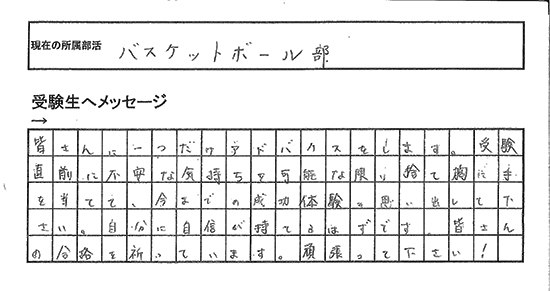 現在の所属部活 バスケットボール部
受験生へメッセージ
→
皆さんに一つだけアドバイスをします。受験
直前に不安な気持ちを可能な限り捨て胸に手
を当てて、今までの成功体験。思い出して下
さい。自分に自信が持てるはずです。皆さん
の合格を祈っています。頑張って下さい!